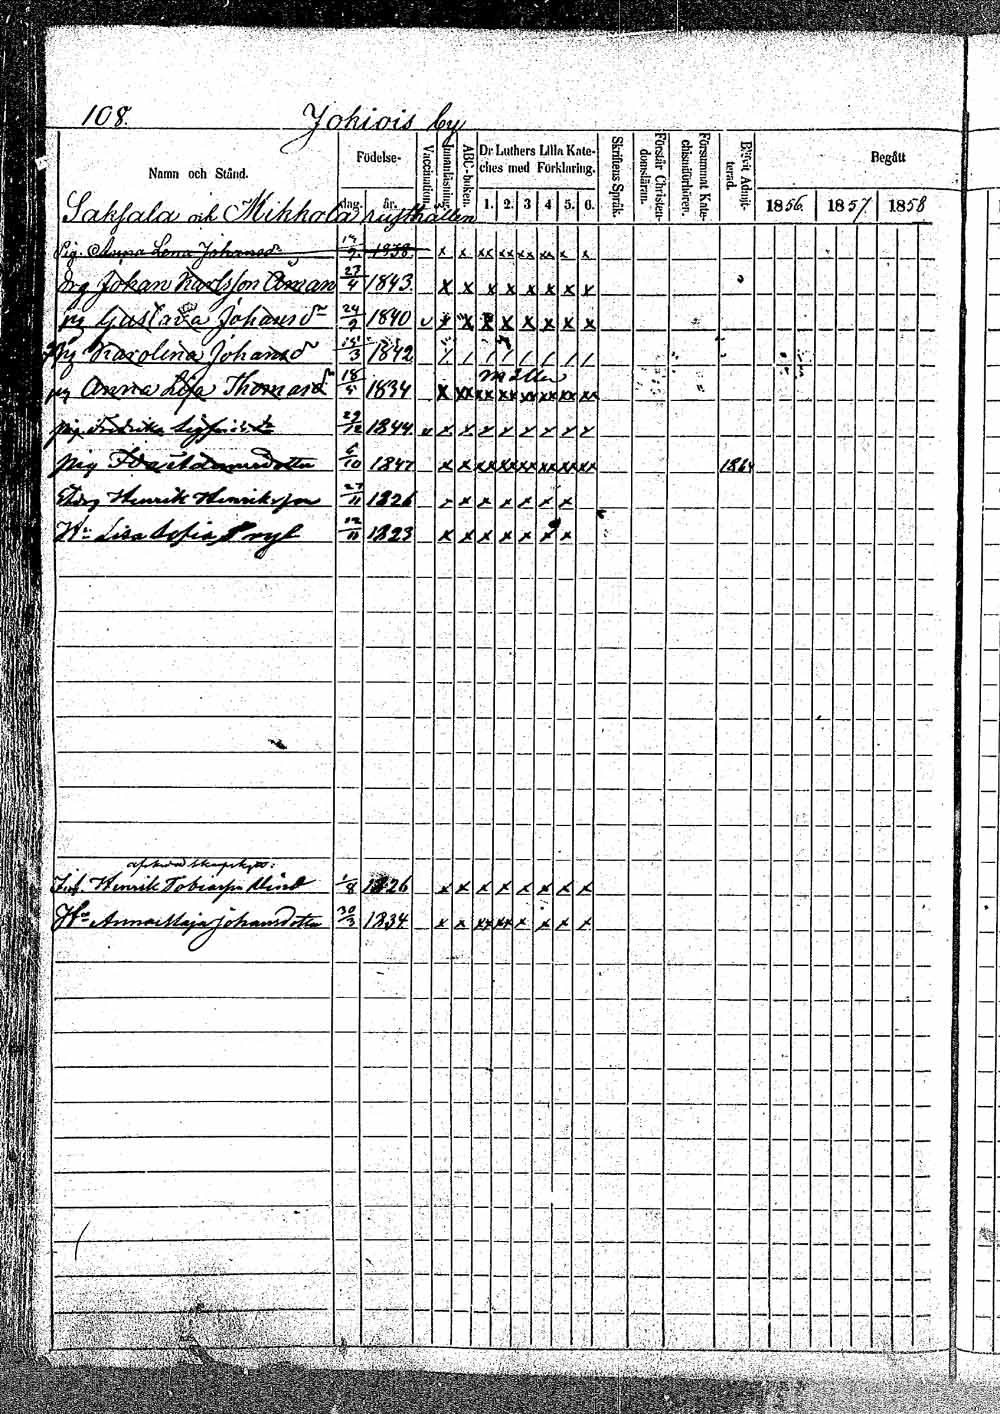 108.
Johiois by
Namn och Stånd.
Födelse-
dag.
år.
Vaccination.
Innanläsning.
ABC-boken.
Dr Luthers Lilla Kate-
ches med Förklaring.
1. 2. 3 4 5. 6.
Skriftens Språk.
Förstår Christen-
domsläran.
Försummat Kate-
chismiförhören.
Blifvit Admit-
terad.
Begått
1856. 1857. 1858
Saksala och Mikkola rusthållen
Pig. Anna Lena Johansdr 9 1838 x x xx xx xx xx x x
Drg Johan Karlsson Åman 27/4 1843 x x x x x x x x
pig Gustava Johansdr 24/9 1840 v x x x x x x x x
Pig Karolina Johansd 15/3 1842 / / / / / / / /
måller
pig Anna Lisa Thomasdr 18 1834 x xx xx xx xx xx xx xx
pig Fredrika 29/12 1844 v x x x x x x x x
pig Ida 6/10 1847 x x xx xx xx xx xx xx 1864
Henrik Henriksson 27/11 1826 x x x x x x x
Hu Lisa Sofia 12/11 1823 x x x x x x x
Henrik Tobiasson 1/8 1826 x x x x x x x x
Hu Anna Maja Johansdotter 30/3 1834 x x xx xx x x x x